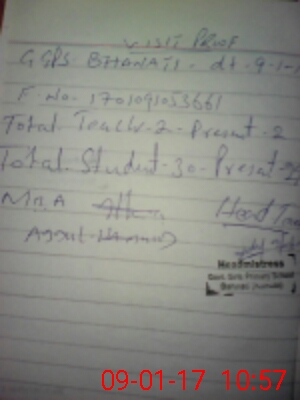 VISIT PROOF
GGPS BHANATI. dt-9-1-
F. No. 1701091053661
Total Teachr-2-Present-2
Total Student-30-Present-
M.n.A Head Tea
Headmistress
Govt. Girls Primary School
09-01-17 10:57